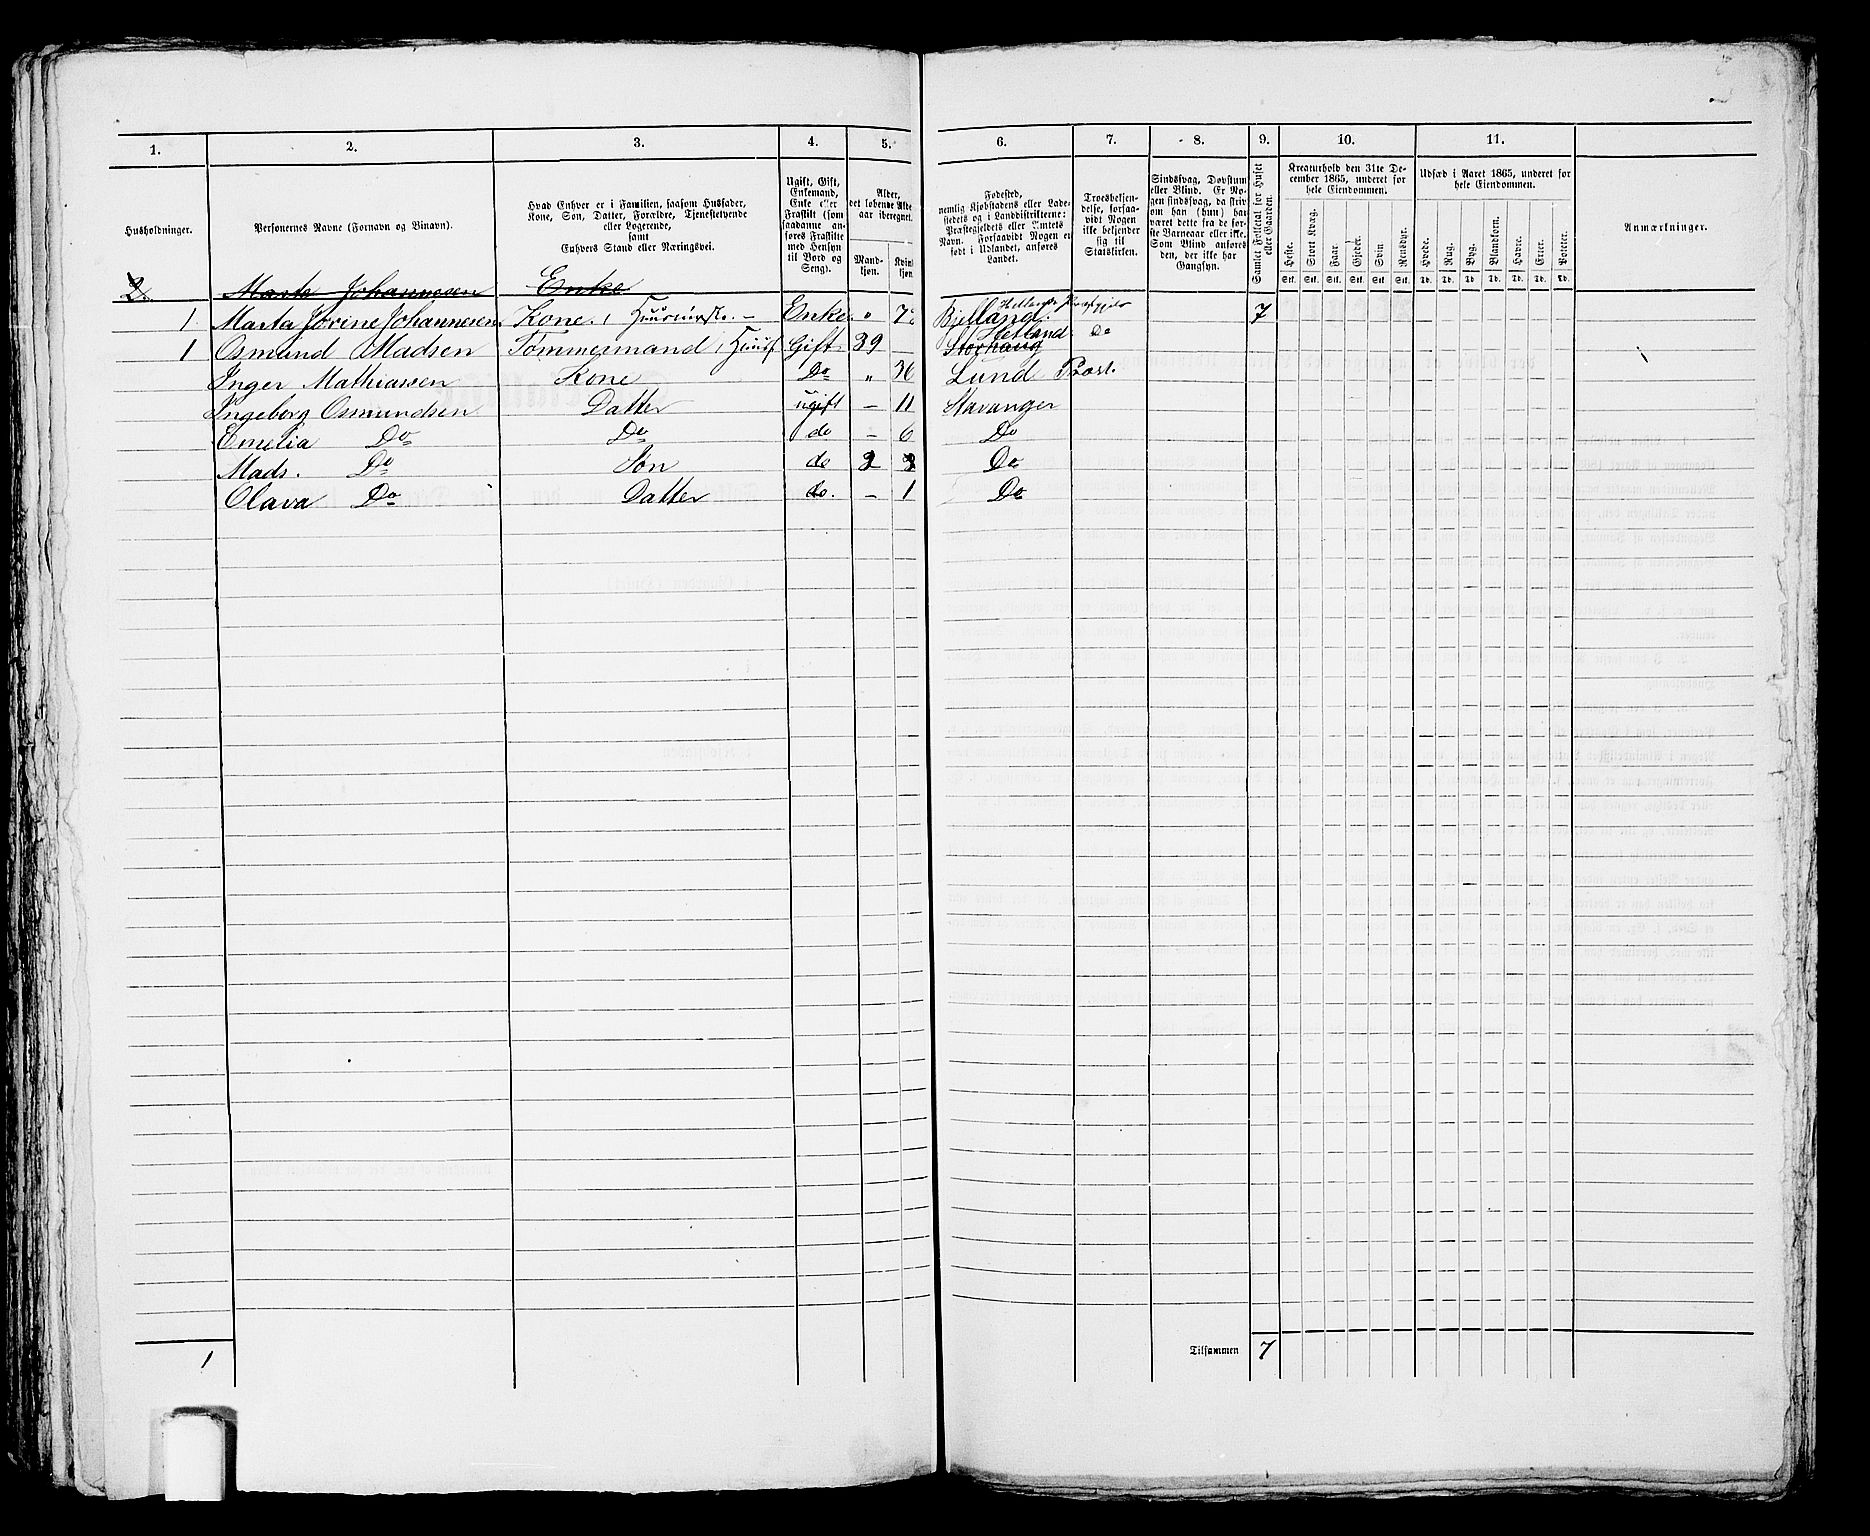 1. 2. 3. 4. 5. 6. 7. 8. 9. 10. 11.
Husholdninger.
Personernes Navne (Fornavn og Binavn).
Hvad Enhver er i Familien, saasom Husfader,
Kone, Søn, Datter, Forældre, Tjenestetyende
eller Logerende,
samt
Enhvers Stand eller Næringsvei.
Ugift, Gift,
Enkemand,
Enke eller
Fraskilt (som
saadanne an-
føres Fraskilte
med Hensyn
til Bord og
Seng).
Alder,
det løbende Alders-
aar iberegnet.
Mand-
kjøn.
Kvin-
kjøn.
Fødested,
nemlig Kjøbstadens eller Lade-
stedets og i Landdistrikterne:
Præstegjeldets eller Amtets
Navn. Forsaavidt Nogen er
født i Udlandet, anføres
Landet.
Troesbekjen-
delse, forsaa-
vidt Nogen
ikke bekjender
sig til
Statskirken.
Sindssvag, Døvstum
eller Blind. Er No-
gen sindssvag, da skriv
om han (hun) har
været dette fra de før-
ste Barneaar eller ikke.
Som Blind anføres
den, der ikke har
Gangsyn.
Samlet Folketal for Huset
eller Gaarden.
Kreaturhold den 31te De-
cember 1865, underet for
hele Eiendommen.
Heste. Stort Kvæg. Faar. Gjeder. Svin Rensdyr.
Stk. Stk. Stk. Stk. Stk. Stk.
Udsæd i Aaret 1865, underet for
hele Eiendommen.
Hvede. Rug. Byg. Blandkorn. Havre. Erter. Poteter.
Td. Td. Td. Td. Td. Td. Td.
Anmærkninger.
2. Marta Johannesen Enke
1 Marta Jorine Johannesen. Kone. Enke. " Bjelland. 7
1 Osmund Madsen Tømmermand, Huusf Gift 39 Storhaug Hetland. Do
Inger Mathiassen Kone Do " 36 Lund Præst.
Ingeborg Osmundsen Datter ugift — 11 Stavanger
Emelia Do Do do — 6 Do
Mads. Do Søn do 3 Do
Olava Do Datter do. — 1 Do
1 Tilsammen 7